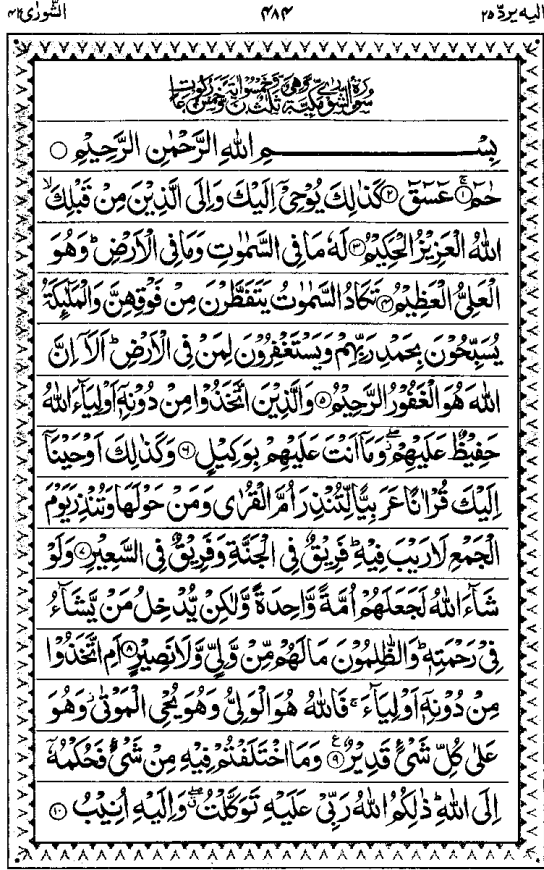 الیه یردّ ۲۵ ۴۸۴ الشورٰی ۴۲
سُوْرَةُ الشُّوْرٰی مَکِّیَّةٌ وَّهِیَ ثَلٰثٌ وَّخَمْسُوْنَ اٰیَةً وَّخَمْسُ رُکُوْعَاتٍ
بِسْمِ اللهِ الرَّحْمٰنِ الرَّحِیْمِ ○
حٰمٓ ۚ﴿۱﴾ عٓسٓقٓ ﴿۲﴾ كَذٰلِكَ یُوْحِیْۤ اِلَیْكَ وَاِلَی الَّذِیْنَ مِنْ قَبْلِكَ ۙ
اللهُ الْعَزِیْزُ الْحَكِیْمُ ﴿۳﴾ لَهٗ مَا فِی السَّمٰوٰتِ وَمَا فِی الْاَرْضِ ؕ وَهُوَ
الْعَلِیُّ الْعَظِیْمُ ﴿۴﴾ تَكَادُ السَّمٰوٰتُ یَتَفَطَّرْنَ مِنْ فَوْقِهِنَّ وَالْمَلٰٓئِكَةُ
یُسَبِّحُوْنَ بِحَمْدِ رَبِّهِمْ وَیَسْتَغْفِرُوْنَ لِمَنْ فِی الْاَرْضِ ؕ اَلَاۤ اِنَّ
اللهَ هُوَ الْغَفُوْرُ الرَّحِیْمُ ﴿۵﴾ وَالَّذِیْنَ اتَّخَذُوْا مِنْ دُوْنِهٖۤ اَوْلِیَآءَ اللهُ
حَفِیْظٌ عَلَیْهِمْ ۖ وَمَاۤ اَنْتَ عَلَیْهِمْ بِوَكِیْلٍ ﴿۶﴾ وَكَذٰلِكَ اَوْحَیْنَاۤ
اِلَیْكَ قُرْاٰنًا عَرَبِیًّا لِّتُنْذِرَ اُمَّ الْقُرٰی وَمَنْ حَوْلَهَا وَتُنْذِرَ یَوْمَ
الْجَمْعِ لَا رَیْبَ فِیْهِ ؕ فَرِیْقٌ فِی الْجَنَّةِ وَفَرِیْقٌ فِی السَّعِیْرِ ﴿۷﴾ وَلَوْ
شَآءَ اللهُ لَجَعَلَهُمْ اُمَّةً وَّاحِدَةً وَّلٰكِنْ یُّدْخِلُ مَنْ یَّشَآءُ
فِیْ رَحْمَتِهٖ ؕ وَالظّٰلِمُوْنَ مَا لَهُمْ مِّنْ وَّلِیٍّ وَّلَا نَصِیْرٍ ﴿۸﴾ اَمِ اتَّخَذُوْا
مِنْ دُوْنِهٖۤ اَوْلِیَآءَ ۚ فَاللهُ هُوَ الْوَلِیُّ وَهُوَ یُحْیِ الْمَوْتٰی ؗ وَهُوَ
عَلٰی كُلِّ شَیْءٍ قَدِیْرٌ ﴿۹﴾ ع وَمَا اخْتَلَفْتُمْ فِیْهِ مِنْ شَیْءٍ فَحُكْمُهٗۤ
اِلَی اللهِ ؕ ذٰلِكُمُ اللهُ رَبِّیْ عَلَیْهِ تَوَكَّلْتُ ۖ وَاِلَیْهِ اُنِیْبُ ﴿۱۰﴾